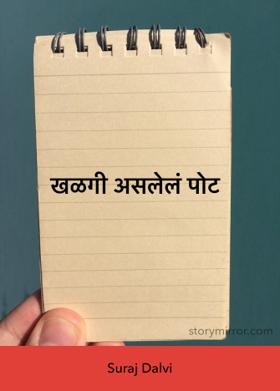 खळगी असलेलं पोट
storymirror.com
Suraj Dalvi